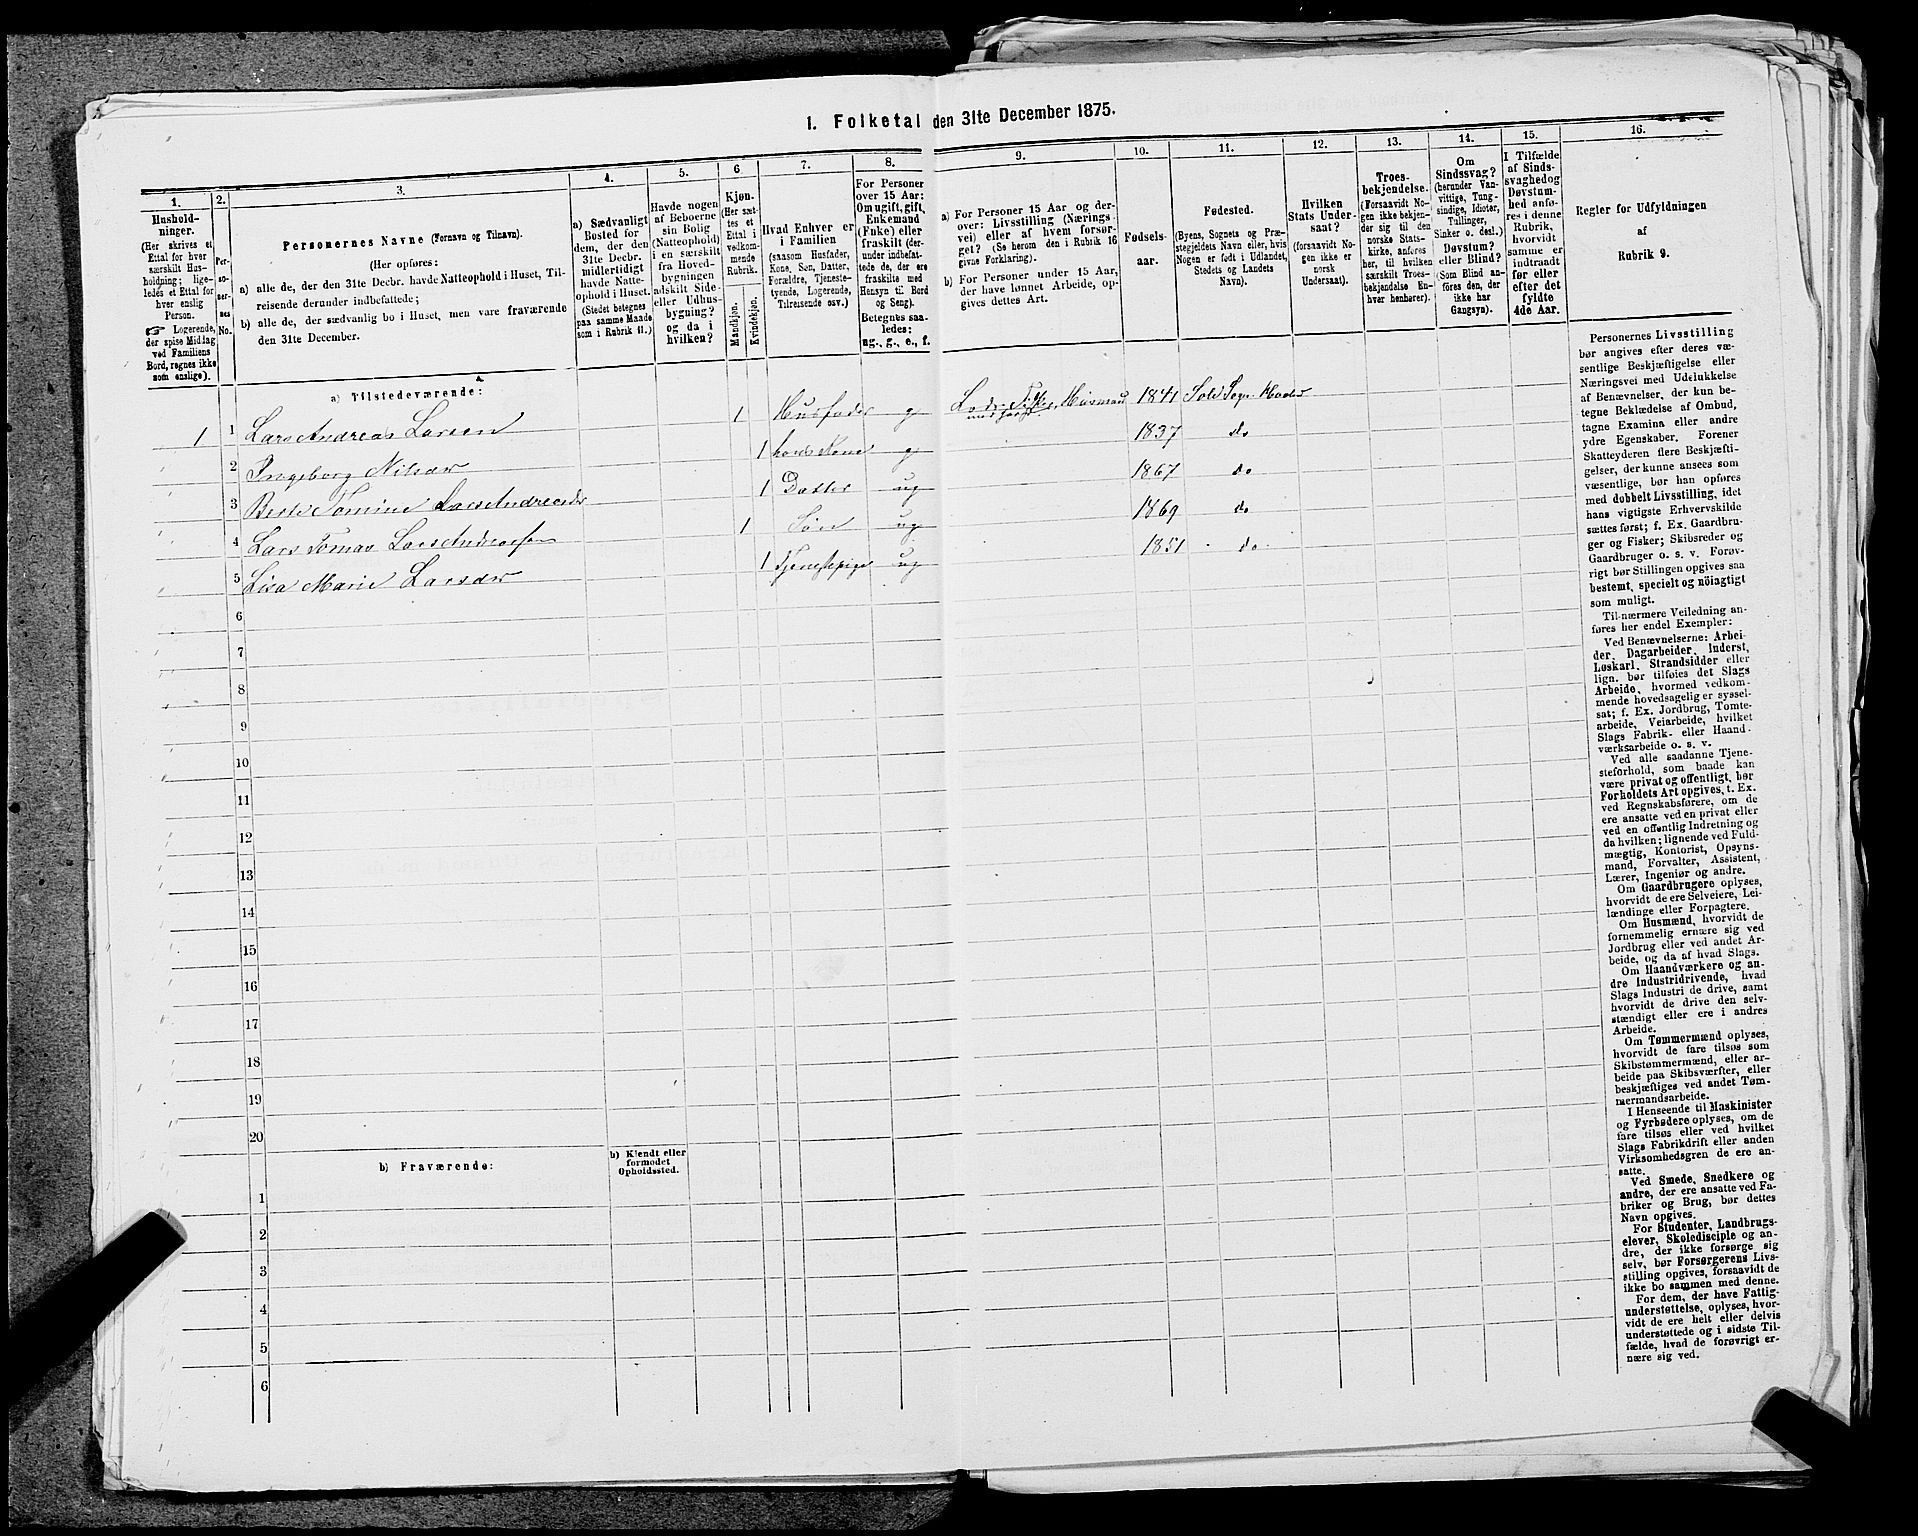 1. Folketal den 31te December 1875.
1.
Hushold-
ninger.
(Her skrives et
Ettal for hver
særskilt Hus-
holdning; lige-
ledes et Ettal for
hver enslig
Person.
☞ Logerende,
der spise Middag
ved Familiens
Bord, regnes ikke
som enslige).
2.
Per-
so-
ner-
nes
No.
3.
Personernes Navne (Fornavn og Tilnavn).
(Her opføres:
a) alle de, der den 31te Decbr. havde Natteophold i Huset, Til-
reisende derunder indbefattede;
b) alle de, der sædvanlig bo i Huset, men vare fraværende
den 31te December.
4.
a) Sædvanligt
Bosted for
dem, der den
31te Decbr.
midlertidigt
havde Natte-
ophold i Huset.
(Stedet betegnes
paa samme Maade
som i Rubrik 11.)
5.
Havde nogen
af Beboerne
sin Bolig
(Natteophold)
i en særskilt
fra Hoved-
bygningen
adskilt Side-
eller Udhus-
bygning?
og da i
hvilken?
6.
Kjøn.
(Her sæt-
tes et
Ettal i
vedkom-
mende
Rubrik.
Mandkjøn.
Kvindekjøn.
7.
Hvad Enhver er
i Familien
(saasom Husfader,
Kone, Søn, Datter,
Forældre, Tjeneste-
tyende, Logerende,
Tilreisende osv.)
8.
For Personer
over 15 Aar:
Om ugift, gift,
Enkemand
(Enke) eller
fraskilt (der-
under indbefat-
tede de, der ere
fraskilte med
Hensyn til Bord
og Seng).
Betegnes saa-
ledes:
ug., g., e., f.
9.
a) For Personer 15 Aar og der-
over: Livsstilling (Nærings-
vei) eller af hvem forsør-
get? (Se herom den i Rubrik 16
givne Forklaring).
b) For Personer under 15 Aar,
der have lønnet Arbeide, op-
gives dettes Art.
10.
Fødsels-
aar.
11.
Fødested.
(Byens, Sognets og Præ-
stegjeldets Navn eller, hvis
Nogen er født i Udlandet,
Stedets og Landets
Navn).
12.
Hvilken
Stats Under-
saat?
(forsaavidt No-
gen ikke er
norsk
Undersaat).
13.
Troes-
bekjendelse.
(Forsaavidt No-
gen ikke bekjen-
der sig til den
norske Stats-
kirke, anføres
her, til hvilken
særskilt Troes-
bekjendelse En-
hver henhører).
14.
Om
Sindssvag?
(herunder Van-
vittige, Tung-
sindige, Idioter,
Tullinger,
Sinker o. desl.)
Døvstum?
eller Blind?
(Som Blind an-
føres den, der
ikke har
Gangsyn).
15.
I Tilfælde
af Sinds-
svaghed og
Døvstum-
hed anfø-
res i denne
Rubrik,
hvorvidt
samme er
indtraadt
før eller
efter det
fyldte
4de Aar.
16.
Regler for Udfyldningen
af
Rubrik 9.
a) Tilstedeværende:
1 1 Lars Andreas Larsen 1 Husfader g Husmand 1841 Sole Sogn
2 Ingeborg Nilsdr 1 hans Kone g 1837 do
3 Berte Tomine LarsAndreasdr 1 Datter ug 1867 do
4 Lars Tomas LarsAndreasen 1 Søn ug 1869 do
5 Lisa Marie Larsdr 1 Tjenestepige ug 1851 do
6
7
8
9
10
11
12
13
14
15
16
17
18
19
20
b) Fraværende:
b) Kjendt eller
formodet
Opholdssted.
1
2
3
4
5
6
Personernes Livsstilling
bør angives efter deres væ-
sentlige Beskjæftigelse eller
Næringsvei med Udelukkelse
af Benævnelser, der kun be-
tegne Beklædelse af Ombud,
tagne Examina eller andre
ydre Egenskaber. Forener
Skatteyderen flere Beskjæfti-
gelser, der kunne ansees som
væsentlige, bør han opføres
med dobbelt Livsstilling, idet
hans vigtigste Erhvervskilde
sættes først; f. Ex. Gaardbru-
ger og Fisker; Skibsreder og
Gaardbruger o. s. v. Forøv-
rigt bør Stillingen opgives saa
bestemt, specielt og nöiagtigt
som muligt.
Til nærmere Veiledning an-
føres her endel Exempler:
Ved Benævnelserne: Arbei-
der, Dagarbeider, Inderst,
Løskarl, Strandsidder eller
lign. bør tilføies det Slags
Arbeide, hvormed vedkom-
mende hovedsagelig er syssel-
sat; f. Ex. Jordbrug, Tomte-
arbeide, Veiarbeide, hvilket
Slags Fabrik- eller Haand-
værksarbeide o. s. v.
Ved alle saadanne Tjene-
steforhold, som baade kan
være privat og offentligt, bør
Forholdets Art opgives, t. Ex.
ved Regnskabsførere, om de
ere ansatte ved en privat eller
ved en offentlig Indretning og
da hvilken; lignende ved Fuld-
mægtig, Kontorist, Opsyns-
mand, Forvalter, Assistent,
Lærer, Ingeniør og andre.
Om Gaardbrugere oplyses,
hvorvidt de ere Selveiere, Lei-
lændinge eller Forpagtere.
Om Husmænd, hvorvidt de
fornemmelig ernære sig ved
Jordbrug eller ved andet Ar-
beide, og da af hvad Slags.
Om Haandværkere og an-
dre Industridrivende, hvad
Slags Industri de drive, samt
hvorvidt de drive den selv-
stændigt eller ere i andres
Arbeide.
Om Tømmermænd oplyses,
hvorvidt de fare tilsøs som
Skibstømmermænd, eller ar-
beide paa Skibsværfter, eller
beskjæftiges ved andet Tøm-
mermandsarbeide.
I Henseende til Maskinister
og Fyrbødere oplyses, om de
fare tilsøs eller ved hvilket
Slags Fabrikdrift eller anden
Virksomhedsgren de ere an-
satte.
Ved Smede, Snedkere og
andre, der ere ansatte ved Fa-
briker og Brug, bør dettes
Navn opgives.
For Studenter, Landbrugs-
elever, Skoledisciple og an-
dre, der ikke forsørge sig
selv, bør Forsørgerens Livs-
stilling opgives, forsaavidt de
ikke bo sammen med denne.
For dem, der have Fattig-
understøttelse, oplyses, hvor-
vidt de ere helt eller delvis
understøttede og i sidste Til-
fælde, hvad de forøvrigt er-
nære sig ved.